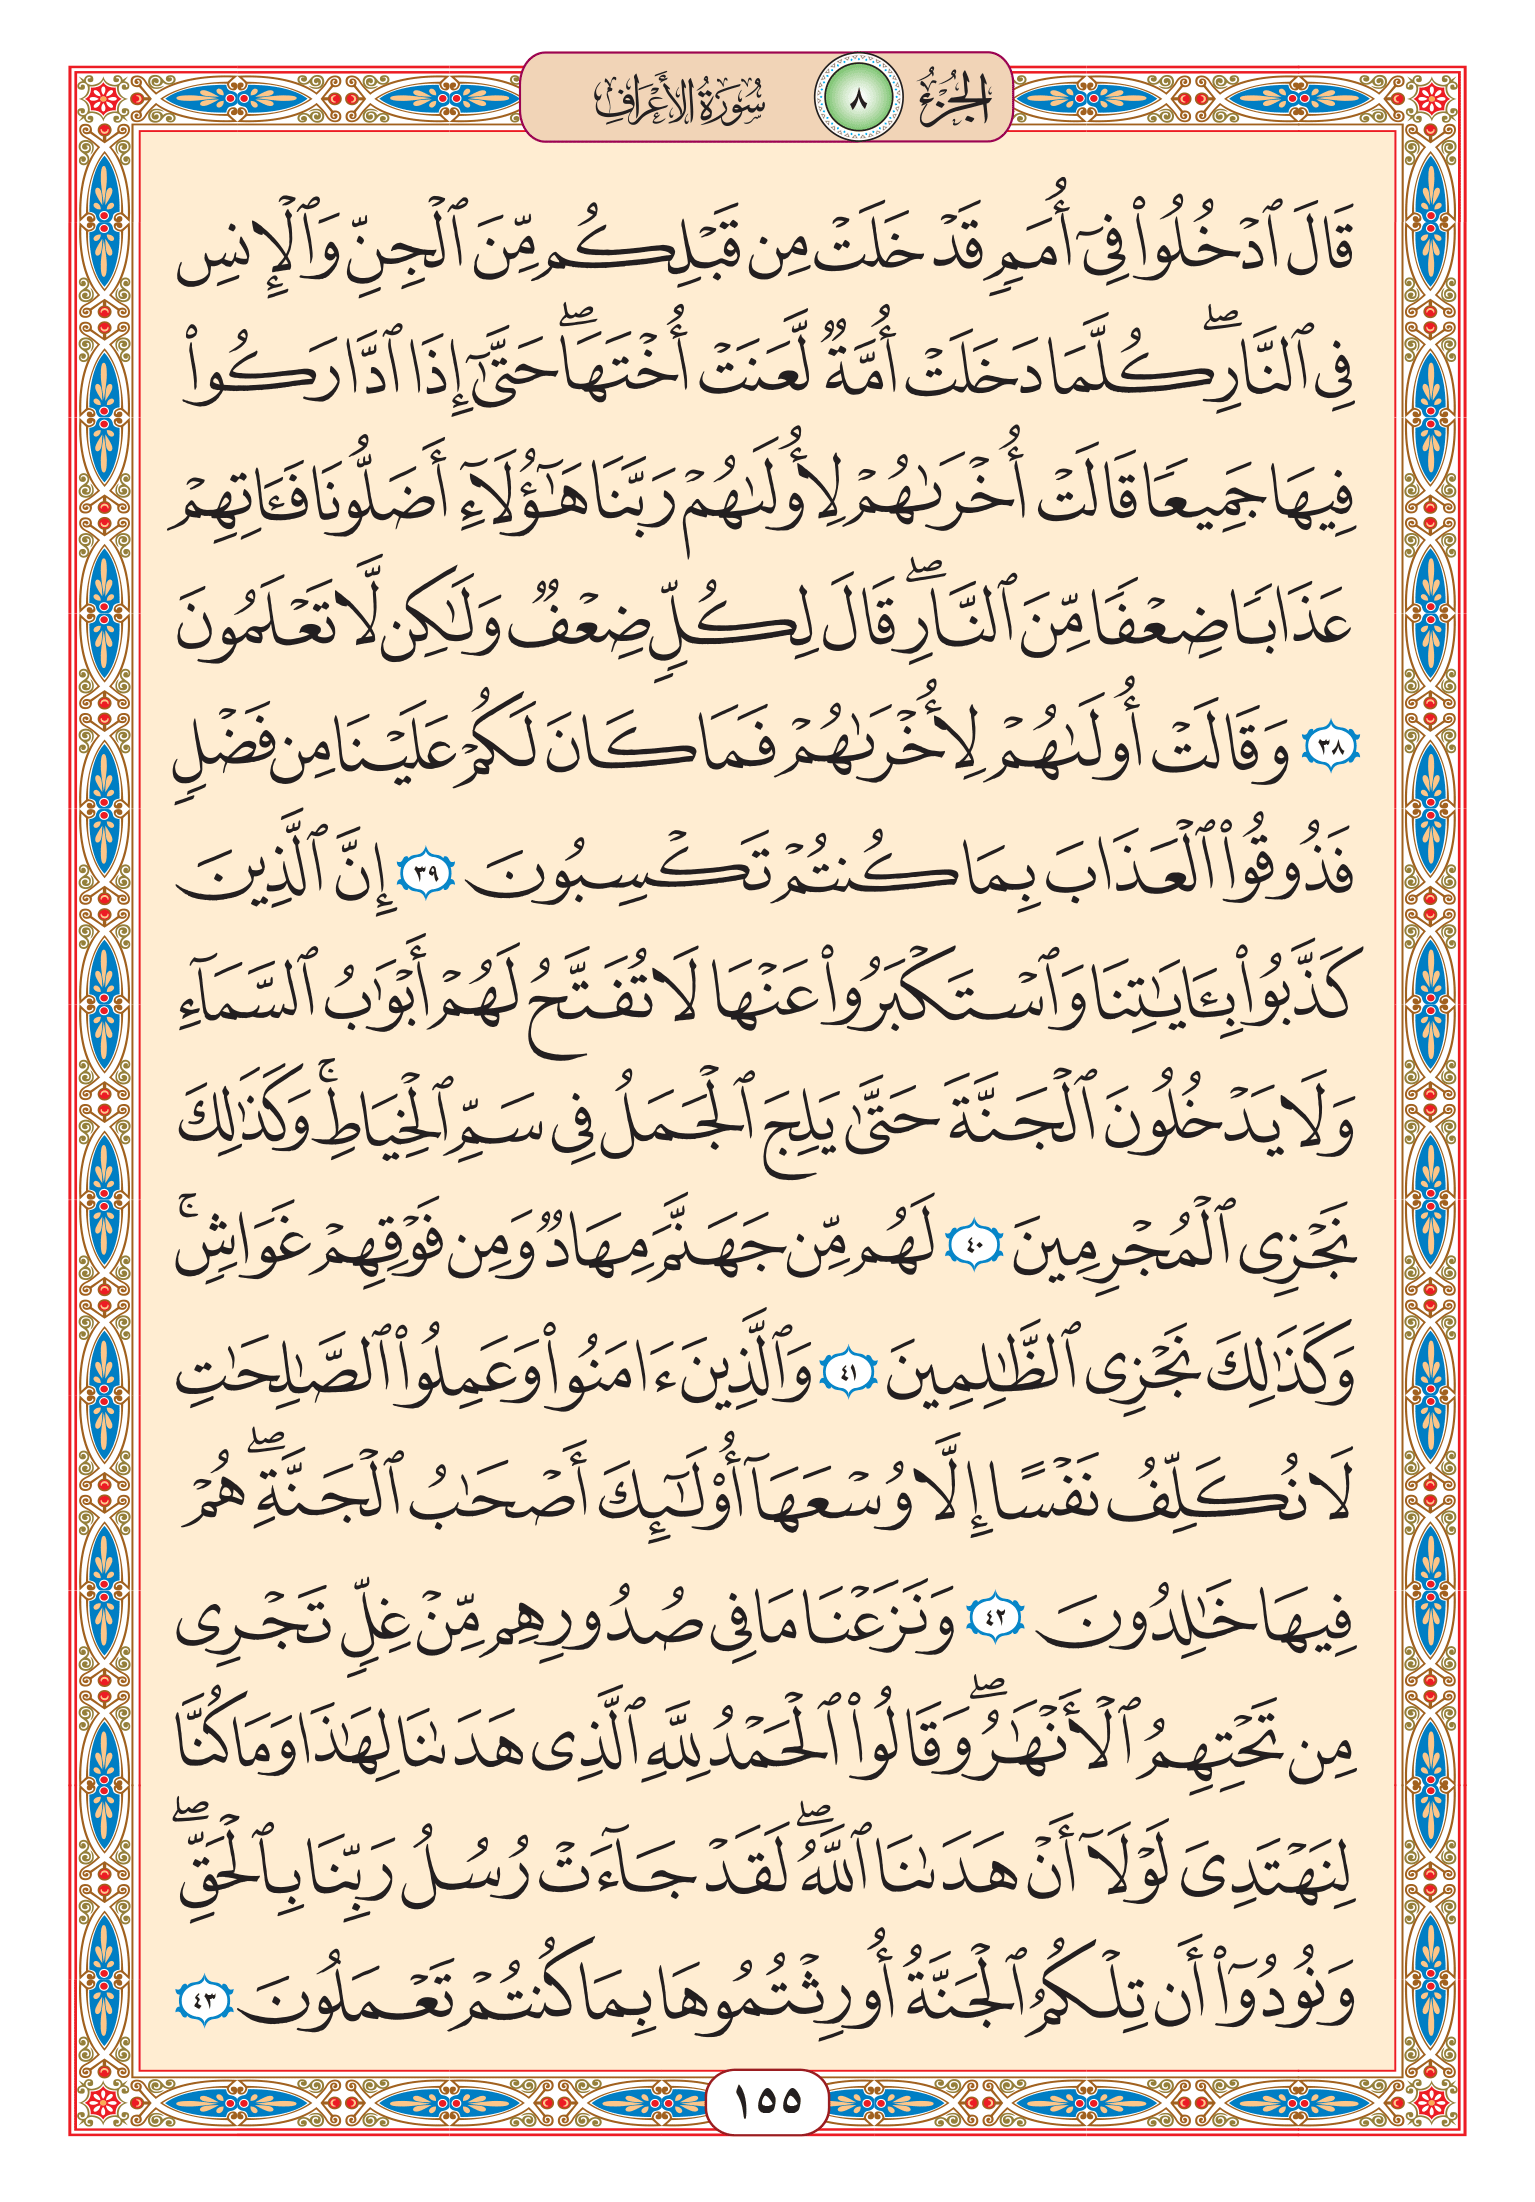 الجزء ٨ سورة الأعراف
قَالَ ٱدۡخُلُواْ فِيٓ أُمَمٖ قَدۡ خَلَتۡ مِن قَبۡلِكُم مِّنَ ٱلۡجِنِّ وَٱلۡإِنسِ
فِي ٱلنَّارِۖ كُلَّمَا دَخَلَتۡ أُمَّةٞ لَّعَنَتۡ أُخۡتَهَاۖ حَتَّىٰٓ إِذَا ٱدَّارَكُواْ
فِيهَا جَمِيعٗا قَالَتۡ أُخۡرَىٰهُمۡ لِأُولَىٰهُمۡ رَبَّنَا هَٰٓؤُلَآءِ أَضَلُّونَا فَـَٔاتِهِمۡ
عَذَابٗا ضِعۡفٗا مِّنَ ٱلنَّارِۖ قَالَ لِكُلّٖ ضِعۡفٞ وَلَٰكِن لَّا تَعۡلَمُونَ
٣٨ وَقَالَتۡ أُولَىٰهُمۡ لِأُخۡرَىٰهُمۡ فَمَا كَانَ لَكُمۡ عَلَيۡنَا مِن فَضۡلٖ
فَذُوقُواْ ٱلۡعَذَابَ بِمَا كُنتُمۡ تَكۡسِبُونَ ٣٩ إِنَّ ٱلَّذِينَ
كَذَّبُواْ بِـَٔايَٰتِنَا وَٱسۡتَكۡبَرُواْ عَنۡهَا لَا تُفَتَّحُ لَهُمۡ أَبۡوَٰبُ ٱلسَّمَآءِ
وَلَا يَدۡخُلُونَ ٱلۡجَنَّةَ حَتَّىٰ يَلِجَ ٱلۡجَمَلُ فِي سَمِّ ٱلۡخِيَاطِۚ وَكَذَٰلِكَ
نَجۡزِي ٱلۡمُجۡرِمِينَ ٤٠ لَهُم مِّن جَهَنَّمَ مِهَادٞ وَمِن فَوۡقِهِمۡ غَوَاشٖۚ
وَكَذَٰلِكَ نَجۡزِي ٱلظَّٰلِمِينَ ٤١ وَٱلَّذِينَ ءَامَنُواْ وَعَمِلُواْ ٱلصَّٰلِحَٰتِ
لَا نُكَلِّفُ نَفۡسًا إِلَّا وُسۡعَهَآ أُوْلَٰٓئِكَ أَصۡحَٰبُ ٱلۡجَنَّةِۖ هُمۡ
فِيهَا خَٰلِدُونَ ٤٢ وَنَزَعۡنَا مَا فِي صُدُورِهِم مِّنۡ غِلّٖ تَجۡرِي
مِن تَحۡتِهِمُ ٱلۡأَنۡهَٰرُۖ وَقَالُواْ ٱلۡحَمۡدُ لِلَّهِ ٱلَّذِي هَدَىٰنَا لِهَٰذَا وَمَا كُنَّا
لِنَهۡتَدِيَ لَوۡلَآ أَنۡ هَدَىٰنَا ٱللَّهُۖ لَقَدۡ جَآءَتۡ رُسُلُ رَبِّنَا بِٱلۡحَقِّۖ
وَنُودُوٓاْ أَن تِلۡكُمُ ٱلۡجَنَّةُ أُورِثۡتُمُوهَا بِمَا كُنتُمۡ تَعۡمَلُونَ ٤٣
١٥٥